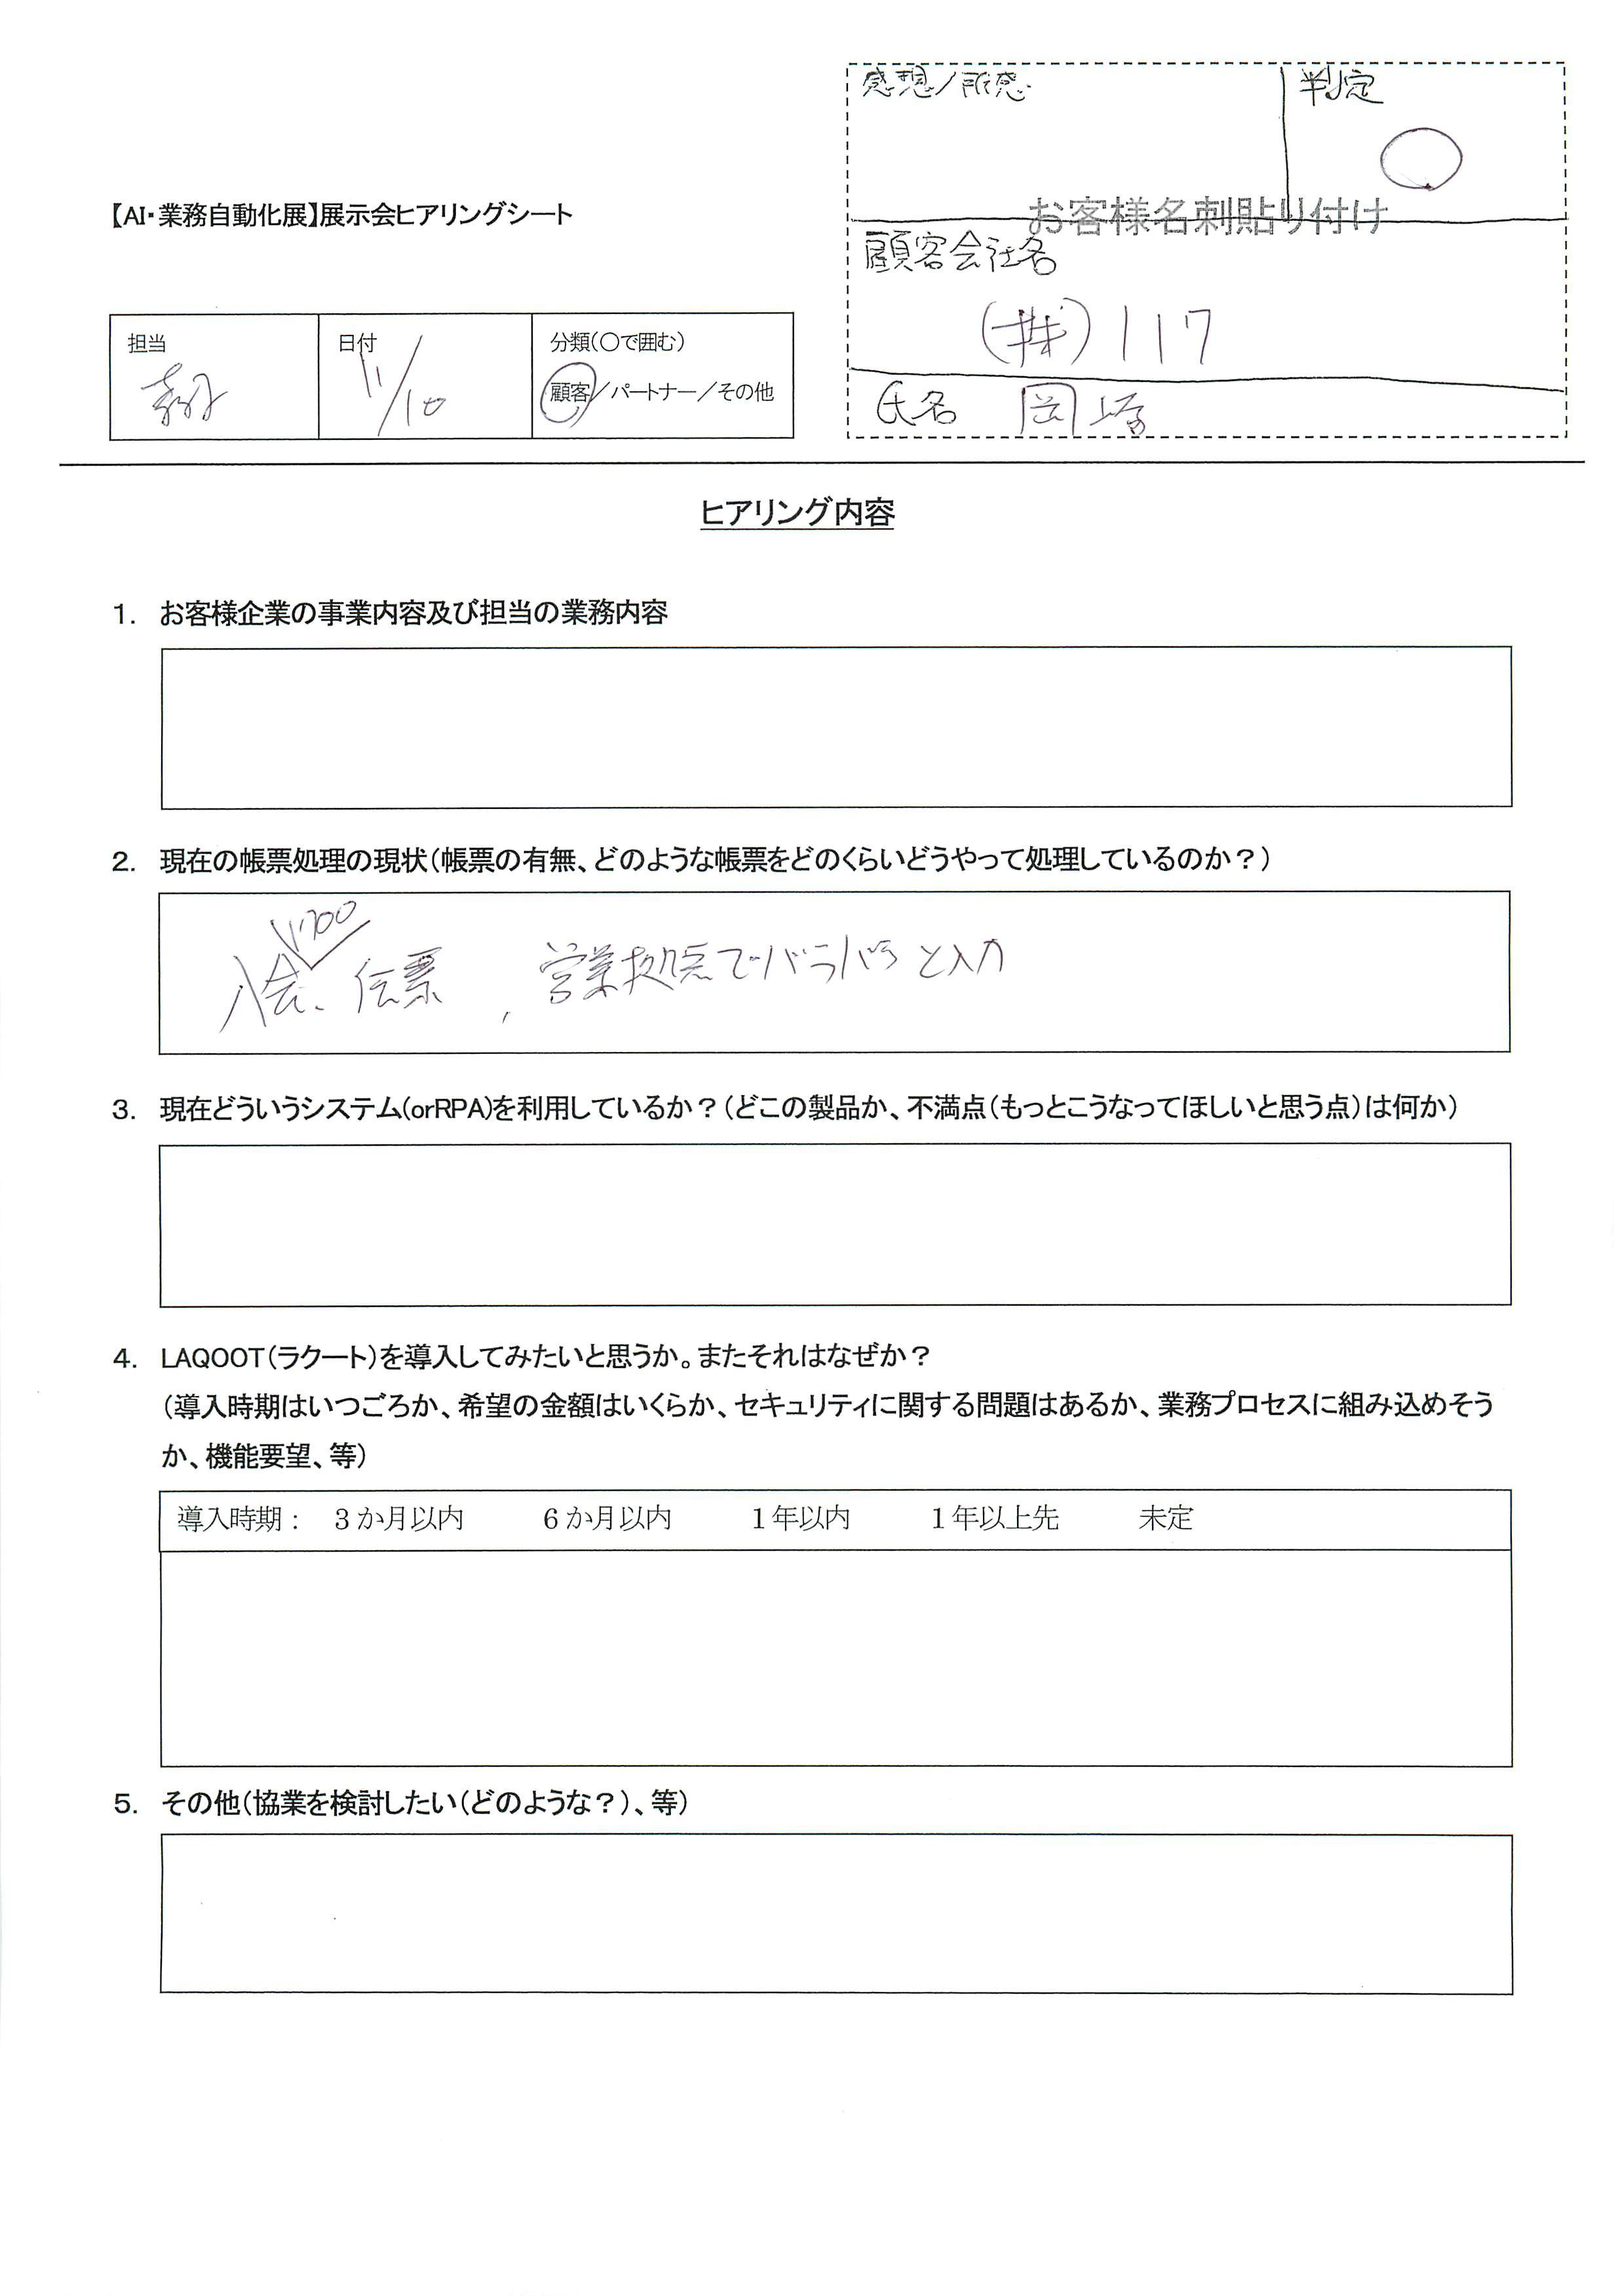 感想/所感
判定
○
お客様名刺貼り付け
【AI・業務自動化展】展示会ヒアリングシート
顧客会社名
(株)117
氏名 岡崎
担当
日付
11/10
分類(○で囲む)
顧客/パートナー/その他
ヒアリング内容
1. お客様企業の事業内容及び担当の業務内容
2. 現在の帳票処理の現状(帳票の有無、どのような帳票をどのくらいどうやって処理しているのか?)
入会、伝票 , 営業拠点でバラバラと入力
3. 現在どういうシステム(orRPA)を利用しているか?(どこの製品か、不満点(もっとこうなってほしいと思う点)は何か)
4. LAQOOT(ラクート)を導入してみたいと思うか。またそれはなぜか?
(導入時期はいつごろか、希望の金額はいくらか、セキュリティに関する問題はあるか、業務プロセスに組み込めそう
か、機能要望、等)
導入時期: 3か月以内 6か月以内 1年以内 1年以上先 未定
5. その他(協業を検討したい(どのような?)、等)